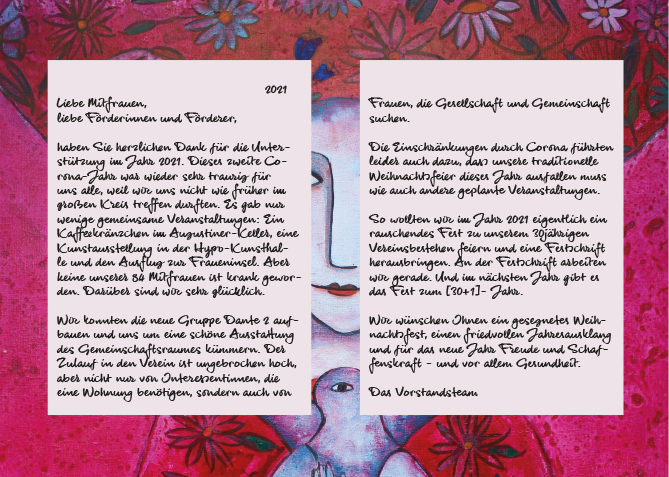 2021
Liebe Mitfrauen,
liebe Förderinnen und Förderer,
haben Sie herzlichen Dank für die Unter-
stützung im Jahr 2021. Dieses zweite Co-
rona-Jahr war wieder sehr traurig für
uns alle, weil wir uns nicht wie früher im
großen Kreis treffen durften. Es gab nur
wenige gemeinsame Veranstaltungen: Ein
Kaffeekränzchen im Augustiner-Keller, eine
Kunstausstellung in der Hypo-Kunsthal-
le und den Ausflug zur Fraueninsel. Aber
keine unserer 84 Mitfrauen ist krank gewor-
den. Darüber sind wir sehr glücklich.
Wir konnten die neue Gruppe Dante 2 auf-
bauen und uns um eine schöne Ausstattung
des Gemeinschaftsraumes kümmern. Der
Zulauf in den Verein ist ungebrochen hoch,
aber nicht nur von Interessentinnen, die
eine Wohnung benötigen, sondern auch von
Frauen, die Gesellschaft und Gemeinschaft
suchen.
Die Einschränkungen durch Corona führten
leider auch dazu, dass unsere traditionelle
Weihnachtsfeier dieses Jahr ausfallen muss
wie auch andere geplante Veranstaltungen.
So wollten wir im Jahr 2021 eigentlich ein
rauschendes Fest zu unserem 30jährigen
Vereinsbestehen feiern und eine Festschrift
herausbringen. An der Festschrift arbeiten
wir gerade. Und im nächsten Jahr gibt es
das Fest zum [30+1]- Jahr.
Wir wünschen Ihnen ein gesegnetes Weih-
nachtsfest, einen friedvollen Jahresausklang
und für das neue Jahr Freude und Schaf-
fenskraft - und vor allem Gesundheit.
Das Vorstandsteam